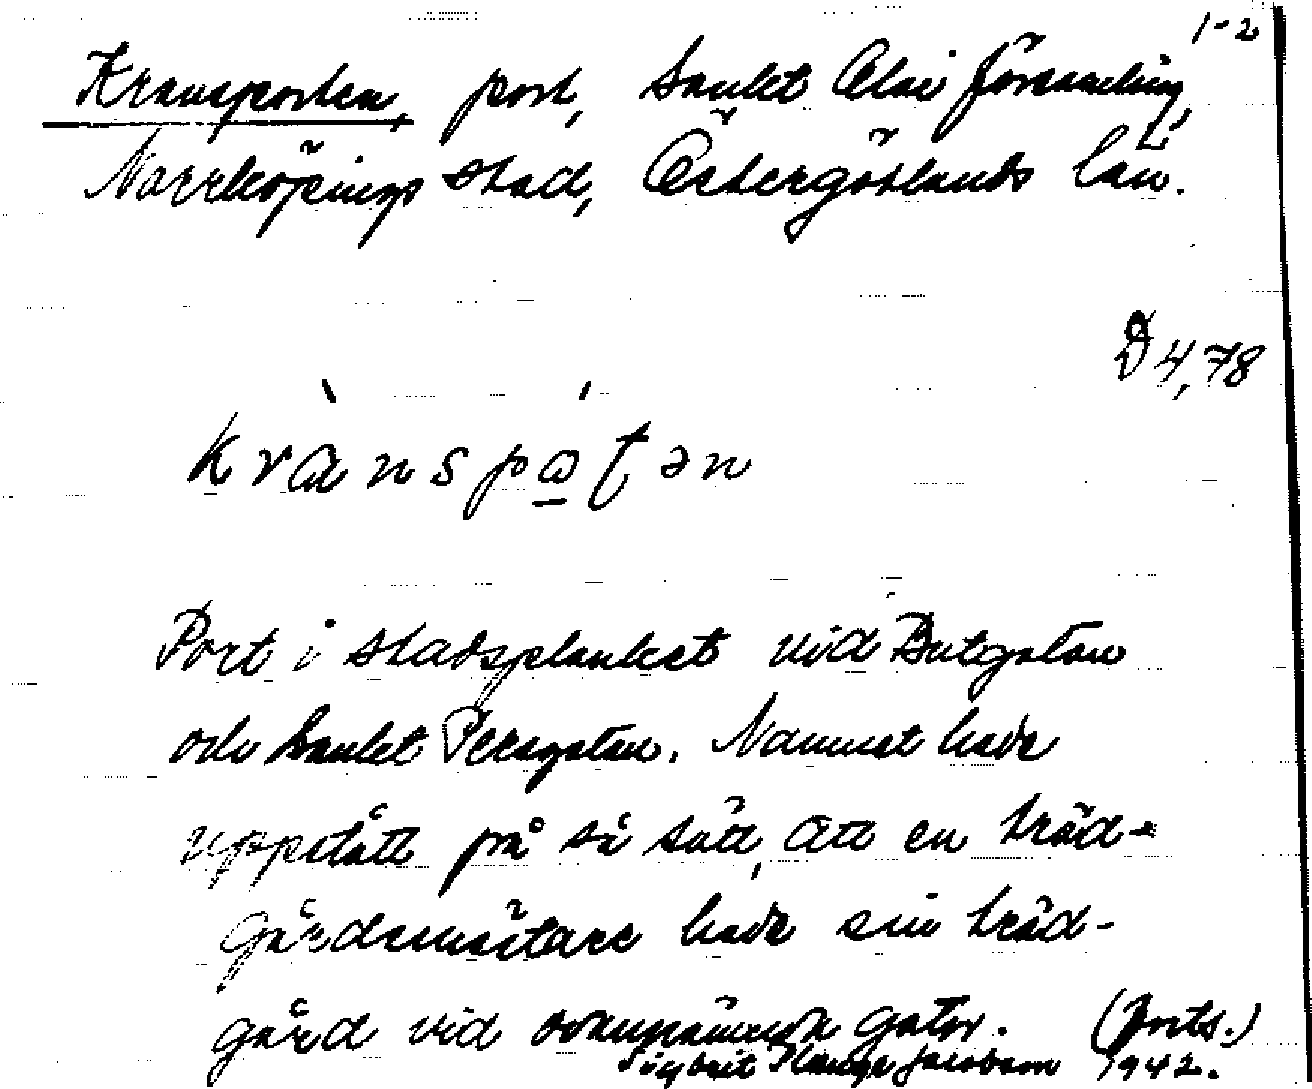 1-2
Kransporten, port, Sankt Olai församling,
Norrköpings stad, Östergötlands län.
D 4,78
Port i stadsplanket vid Butgatan
och Sankt Persgatan. Namnet hade
uppstått på så sätt, att en träd-
gårdsmästare hade sin träd-
gård vid ovannämnda gator. (forts.)
Jacobson 1942.